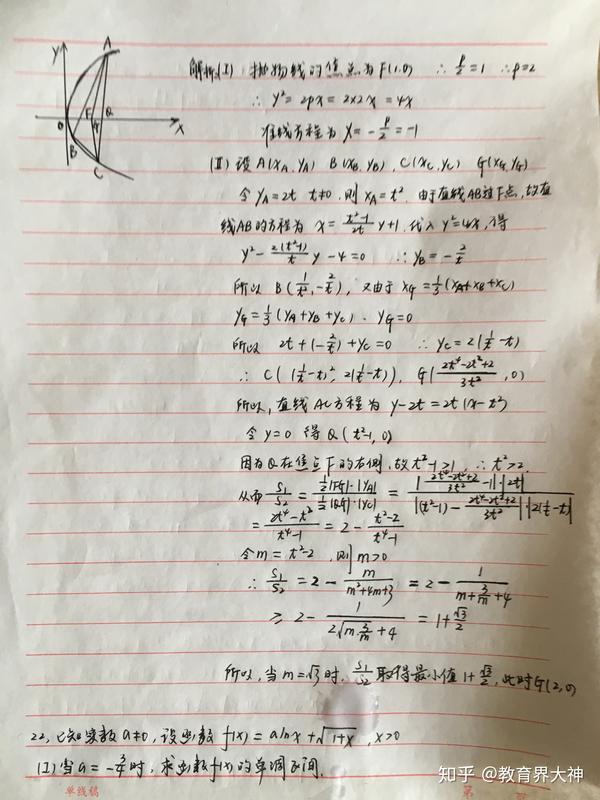 Y
A
O
F
G
Q
X
B
C
解析:(I) 抛物线的焦点为F(1,0) ∴ p/2=1 ∴p=2
∴ y²=2px=2×2x=4x
准线方程为 x=-p/2=-1
(II) 设A(xA,yA) B(xB,yB), C(xC,yC) G(xG,yG)
令yA=2t t≠0, 则 xA=t² 由于直线AB过F点,故直
线AB的方程为 x=(t²-1)/2t y+1, 代入y²=4x,得
y²-2(t²-1)/t y-4=0 ∴yB=-2/t
所以 B(1/t²,-2/t), 又由于 xG=1/3(xA+xB+xC)
yG=1/3(yA+yB+yC). yG=0
所以 2t+(-2/t)+yC=0 ∴yC=2(1/t-t)
∴ C((1/t-t)², 2(1/t-t)), G((2t⁴-2t²+2)/3t²,0)
所以,直线AC方程为 y-2t=2t(x-t²)
令y=0 得Q(t²-1,0)
因为Q在焦点F的右侧,故t²-1>1, ∴t²>2,
从而 S1/S2=(1/2|FG|·|yA|)/(1/2|QG|·|yC|)=(|(2t⁴-2t²+2)/3t²-1|·|2t|)/(|(t²-1)-(2t⁴-2t²+2)/3t²|·|2(1/t-t)|)
=(2t⁴-t²)/(t⁴-1)=2-(t²-2)/(t⁴-1)
令m=t²-2, 则m>0
∴ S1/S2=2-m/(m²+4m+3)=2-1/(m+3/m+4)
≥2-1/(2√(m·3/m)+4)=1+√3/2
所以,当m=√3时, S1/S2取得最小值1+√3/2, 此时G(2,0)
22, 已知实数a≠0, 设函数f(x)=alnx+√(1+x), x>0
(I)当a=-3/4时,求函数f(x)的单调区间.
单线稿
第
知乎 @教育界大神